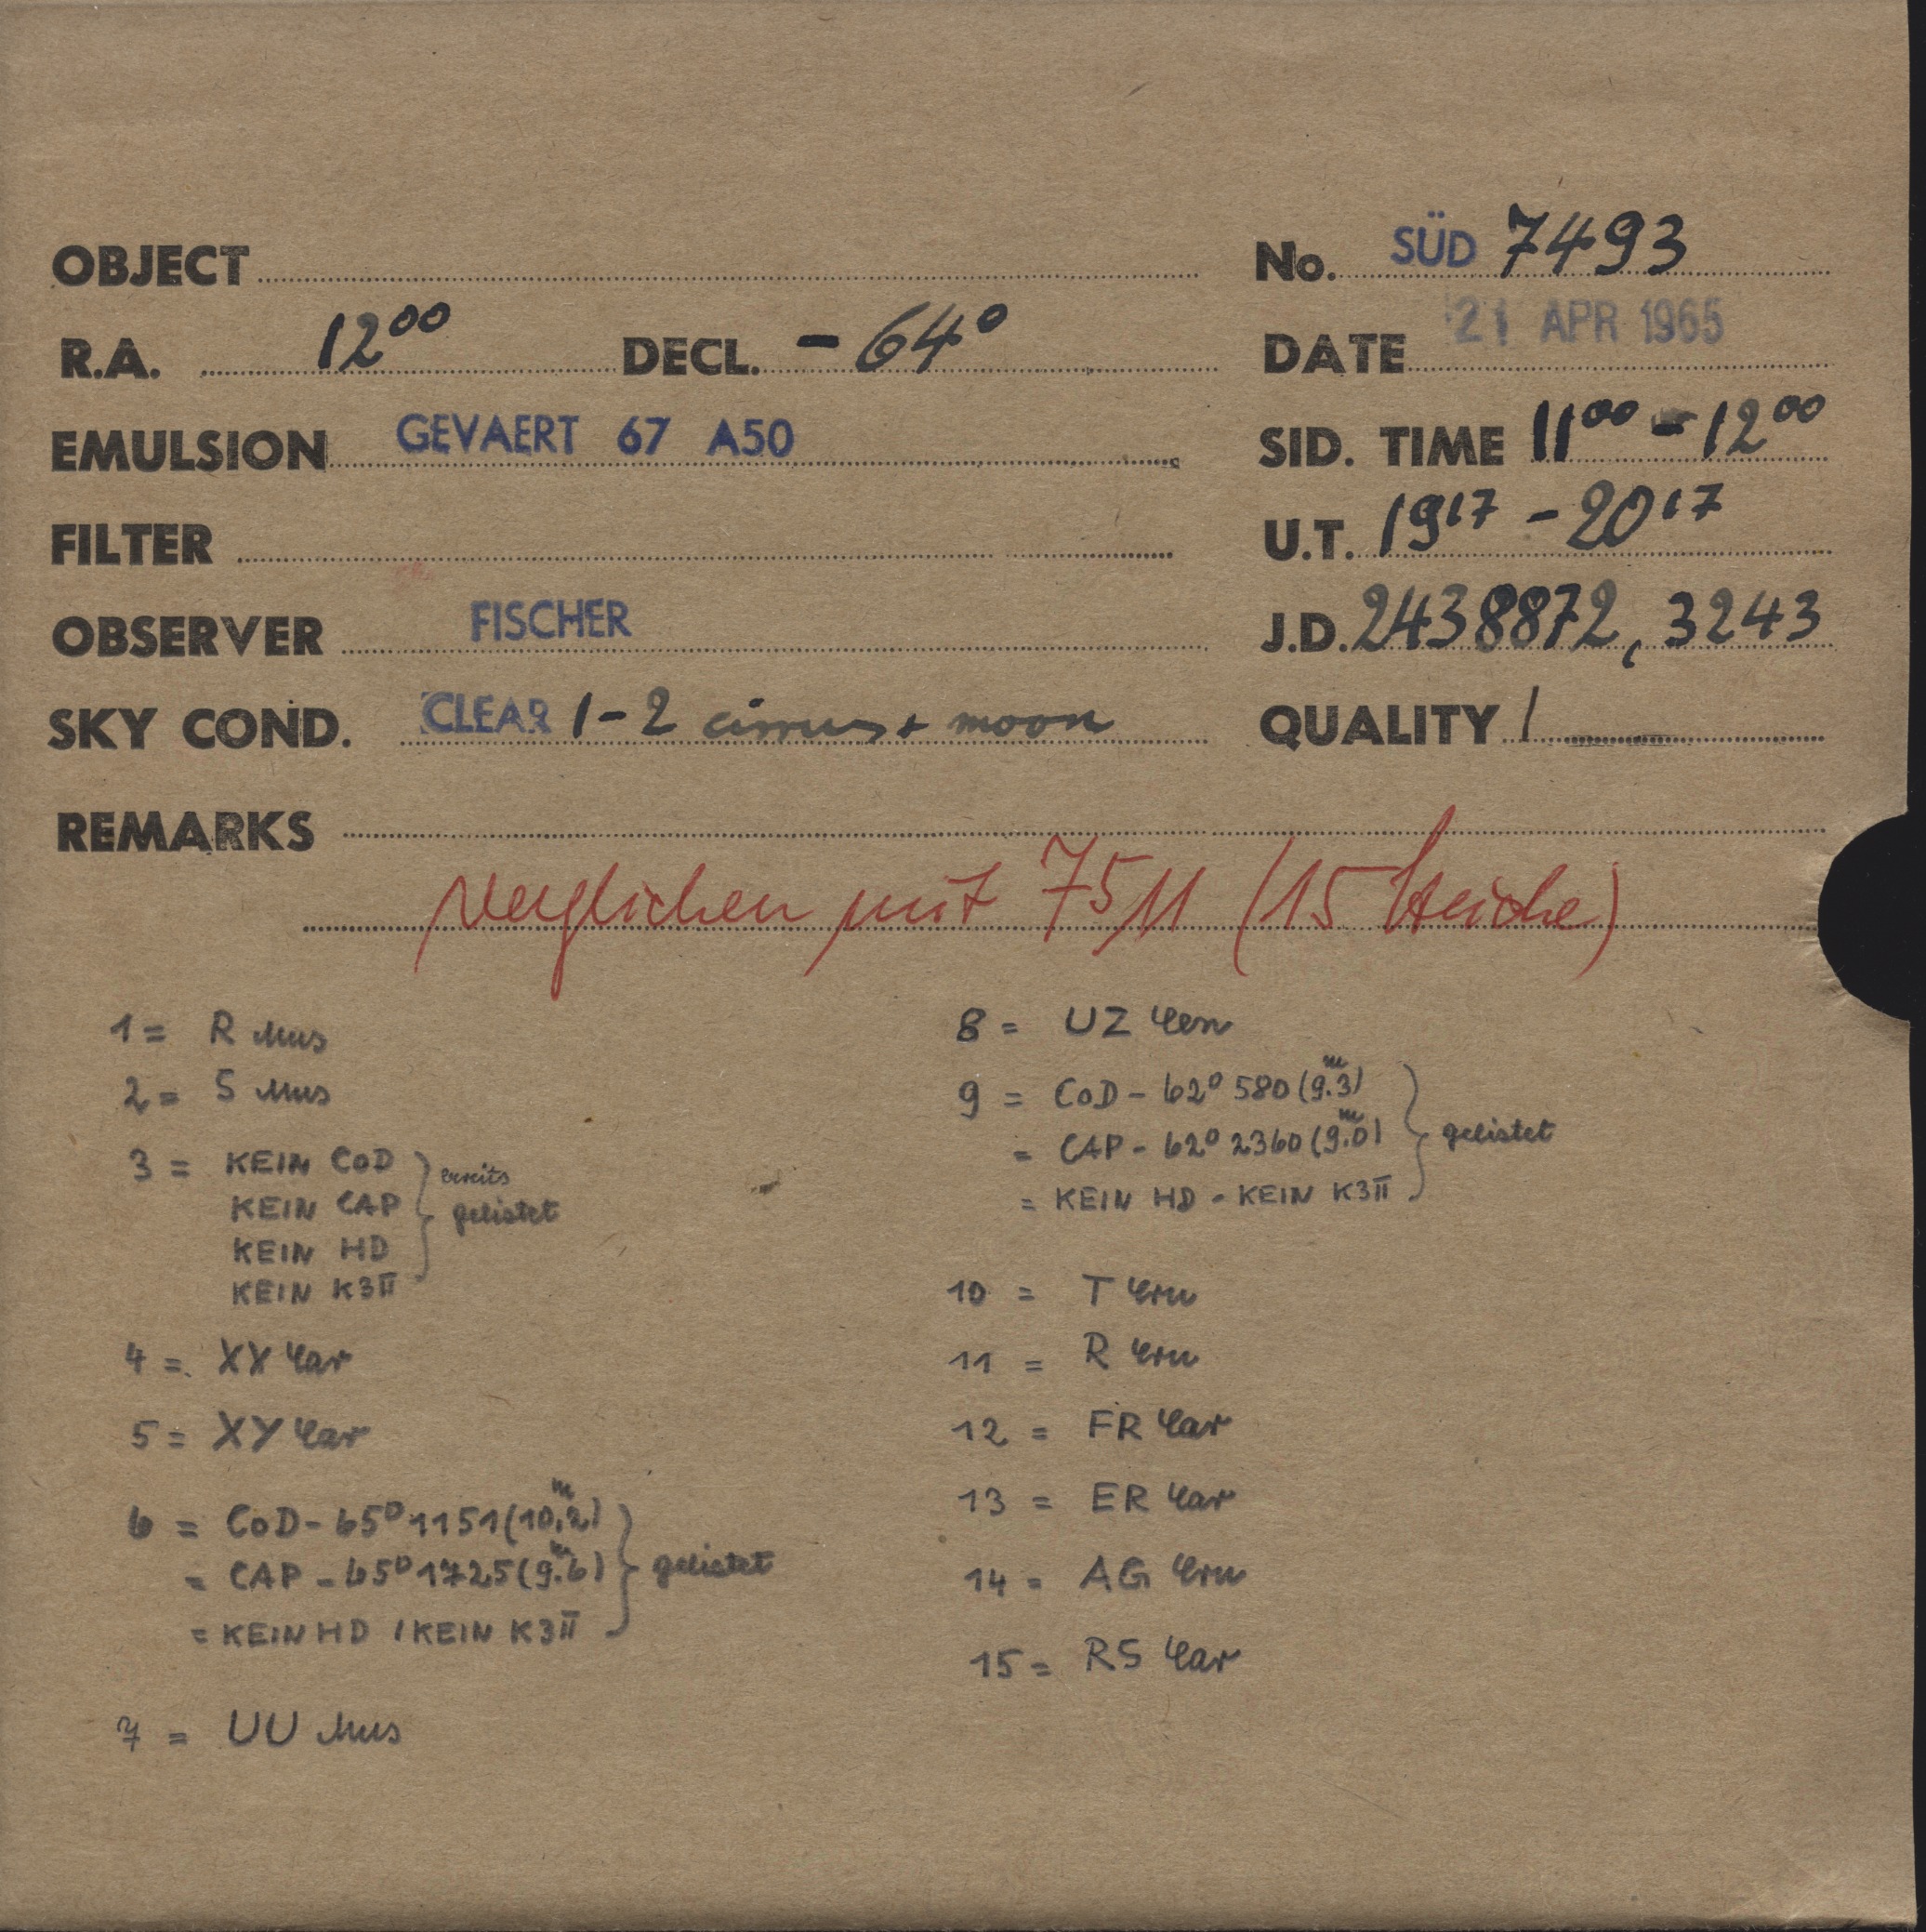 OBJECT
No. SÜD 7493
R.A. 12⁰⁰ DECL. - 64°
DATE 21 APR 1965
EMULSION GEVAERT 67 A50
SID. TIME 11⁰⁰ - 12⁰⁰
FILTER
U.T. 19¹⁷ - 20¹⁷
OBSERVER FISCHER
J.D. 2438872,3243
SKY COND. CLEAR 1-2 cirrus + moon
QUALITY 1
REMARKS
verglichen mit 7511 (15 Striche)
1 = R Mus
2 = S Mus
3 = KEIN CoD
KEIN CAP
KEIN HD
KEIN K3II
bereits
gelistet
4 = XX Car
5 = XY Car
6 = CoD - 65° 1151 (10.ᵐ2)
= CAP - 65° 1725 (9.ᵐ6)
= KEIN HD / KEIN K3II
gelistet
7 = UU Mus
8 = UZ Cen
9 = CoD - 62° 580 (9.ᵐ3)
= CAP - 62° 2360 (9.ᵐ0)
= KEIN HD - KEIN K3II
gelistet
10 = T Cru
11 = R Cru
12 = FR Car
13 = ER Car
14 = AG Cru
15 = RS Car